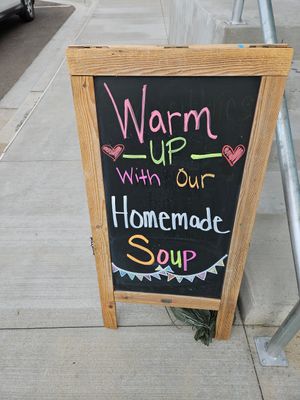 Warm
UP
With Our
Homemade
Soup